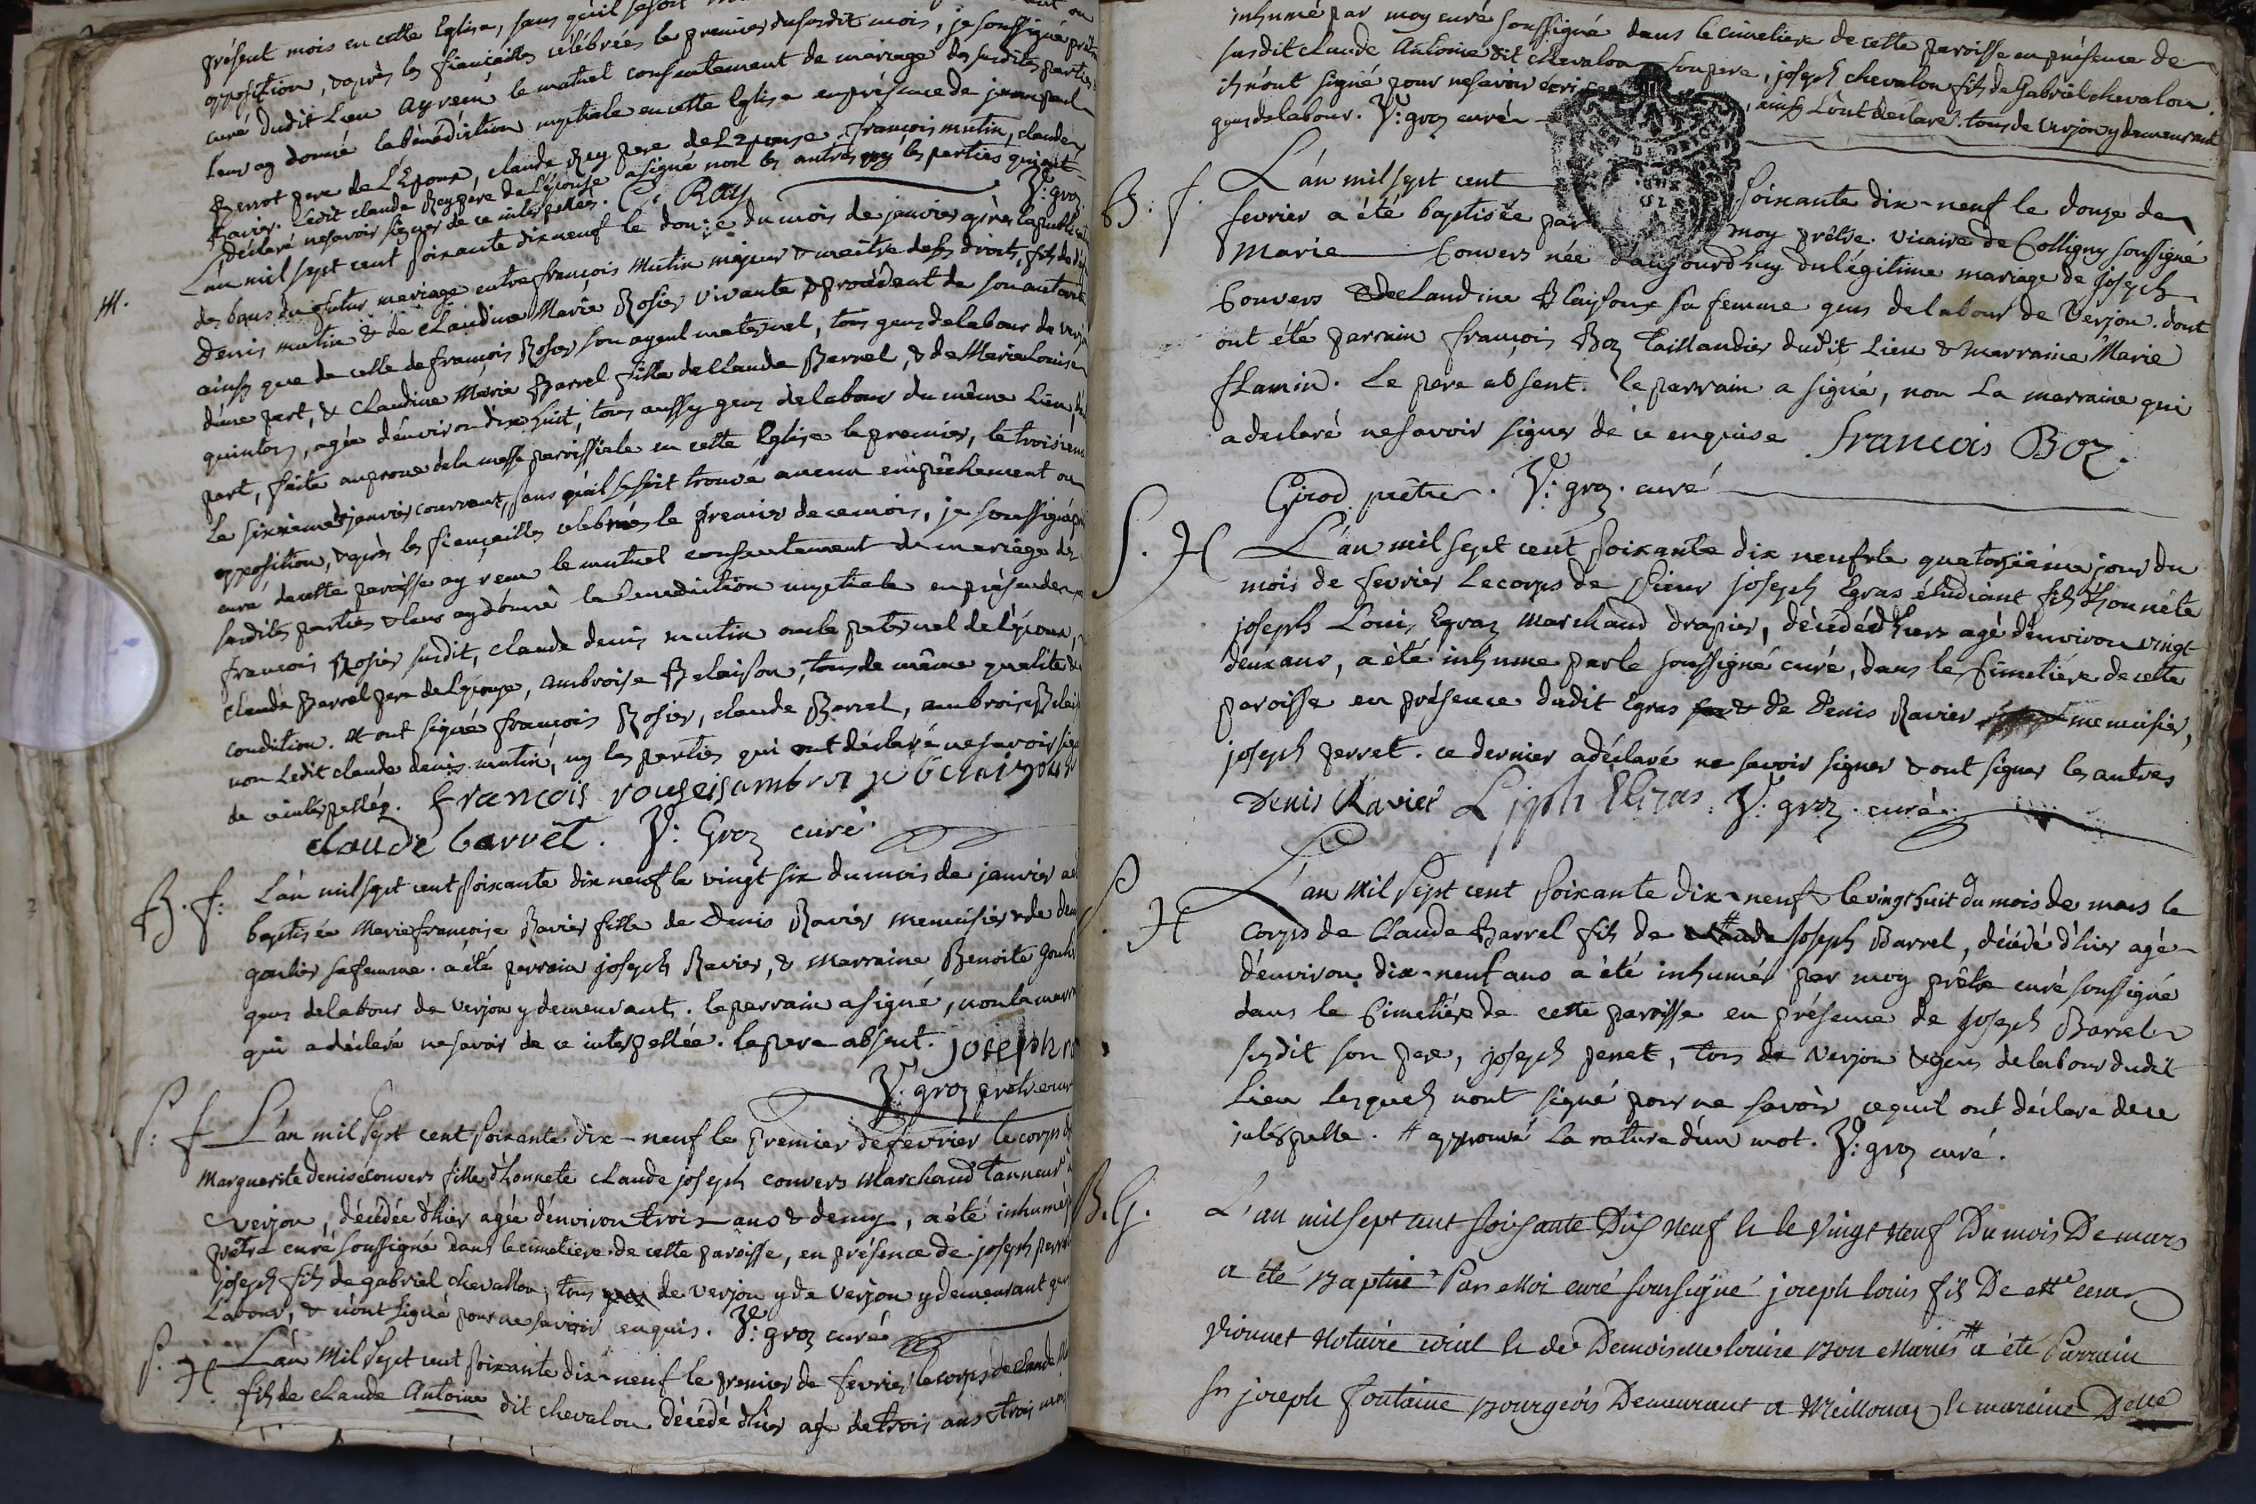 présent mois en cette Eglise, sans qu'il se soit
opposition, & après les fiançailles célébrées le premier du susdit mois, je soussigné
curé dudit Lieu ay reçeu le mutuel consentement de mariage des susdites parties
leur ay donné la bénédiction nuptiale en cette Eglise en présence de jean paul
perrot pere de L'Epoux, claude Rey pere de L'Epouse, françois mutin, claude
Ravier. Ledit claude Rey père de L'épouse a signé non les autres ny les parties qui ont
déclaré ne savoir signer de ce interpellés. C. Ray V: groz
M.
L'an mil sept cent soixante dix neuf le douze du mois de janvier après la publication
des bans du futur mariage entre françois Mutin majeur & maître de ses droits, fils de
Denis mutin & de claudine Marie Rosier vivante & procédant de son autorité
ainsy que de celle de françois Rosier son ayeul maternel, tous gens de labour de verjon
d'une part, & Claudine Marie Barrel fille de Claude Barrel, & de Marie Louise
quinton, agée d'environ dix huit, tous aussy gens de labour du même Lieu,
part, faite au prone de la messe paroissiale en cette Eglise le premier, le troisieme
Le sixieme de janvier courrant, sans qu'il se soit trouvé aucun empêchement ou
opposition, & après les fiançailles célébrées le premier de ce mois, je soussigné
curé de cette paroisse ay reçeu le mutuel consentement de mariage des
susdites parties & leur ay donné la bénédiction nuptiale en présence de
françois Rosier susdit, claude denis mutin oncle paternel de l'époux,
claude Barrel pere de L'épouse, ambroise Belaison, tous de même qualité &
condition. Et ont signé françois Rosier, claude Barrel, ambroise
non Ledit claude denis mutin, ny les parties qui ont déclaré ne savoir
de ce interpellés. francois
claude barrel. V: Groz curé
B. f.
L'an mil sept cent soixante dix neuf le vingt six du mois de janvier a
baptisée Marie françoise Ravier fille de Denis Ravier menuisier & de
goulier sa femme. a été parrain joseph Ravier, & Marraine Benoite
gens de labour de verjon y demeurants. le parrain a signé, non la
qui a déclaré ne savoir de ce interpellée. le pere absent. joseph
V: groz prêtre
S. f.
L'an mil sept cent soixante dix-neuf le premier de fevrier le corps de
Marguerite denise Convers fille d'honnete claude joseph convers Marchand tanneur
verjon, décédée d'hier agée d'environ trois ans & demy, a été inhumée
prêtre curé soussigné dans le cimetiere de cette paroisse, en présence de joseph
joseph fils de gabriel chevallon, tous de verjon y de verjon y demeurant
Labour, & n'ont signé pour ne savoir enquis. V: groz curé
S. H
L'an Mil sept cent soixante dix-neuf le premier de fevrier le corps de claude
fils de claude Antoine dit chevalon décédé d'hier agé de trois ans & trois mois
inhumé par moy curé soussigné dans le cimetiere de cette paroisse en présence de
susdit claude Antoine dit chevalon son pere, joseph chevalon fils de Gabriel chevalon
ils n'ont signé pour ne savoir écrire, ainsy L'ont déclaré. tous de verjon y demeurant
gens de labour. V: groz curé
B. f.
L'an mil sept cent soixante dix-neuf le douze de
fevrier a été baptisée par moy prêtre vicaire de Colligny soussigné
Marie Convers née d'aujourd'huy du légitime mariage de joseph
Convers & de claudine Blaison sa femme gens de labour de Verjon. dont
ont été parrain françois Boz Taillandier dudit Lieu & Marraine Marie
flamin. Le pere absent. le parrain a signé, non La marraine qui
a declaré ne savoir signer de ce enquise francois Boz.
Girod prêtre. V: groz. curé
S. H
L'an mil sept cent soixante dix neuf le quatorzième jour du
mois de fevrier le corps de sieur joseph Egraz étudiant fils d'honnête
joseph Louis Egraz Marchand drapier, décédé d'hier agé d'environ vingt
deux ans, a été inhumé par le soussigné curé, dans le Cimetière de cette
paroisse en présence dudit Egraz & de Denis Ravier menuisier,
joseph perret. ce dernier a déclaré ne savoir signer & ont signer les autres
Denis Ravier L jph Egraz. V. groz. curé
S. H
L'an Mil Sept cent soixante dix-neuf & le vingt huit du mois de mars le
Corps de Claude Barrel fils de Joseph Barrel, décédé d'hier agé
d'environ dix-neuf ans a été inhumé par moy prêtre curé soussigné
dans le Cimetière de cette paroisse en présence de Joseph Barrel
susdit son pere, joseph perret, tous de verjon & gens de labour dudit
Lieu lesquels n'ont signé pour ne savoir, ce qu'il ont déclaré de ce
interpellé. # approuvé La rature d'un mot. V: groz curé.
B. G.
L'an mil sept cent soixante Dix Neuf & le Vingt Neuf Du mois De mars
a été Baptisé Par Moi curé soussigné joseph louis fils De Mtre
vionnet Notaire roial & de Demoiselle louise Bon Mariés # a été Parrain
Sr joseph fontaine Bourgeois Demeurant a Meillonaz & mareine Delle